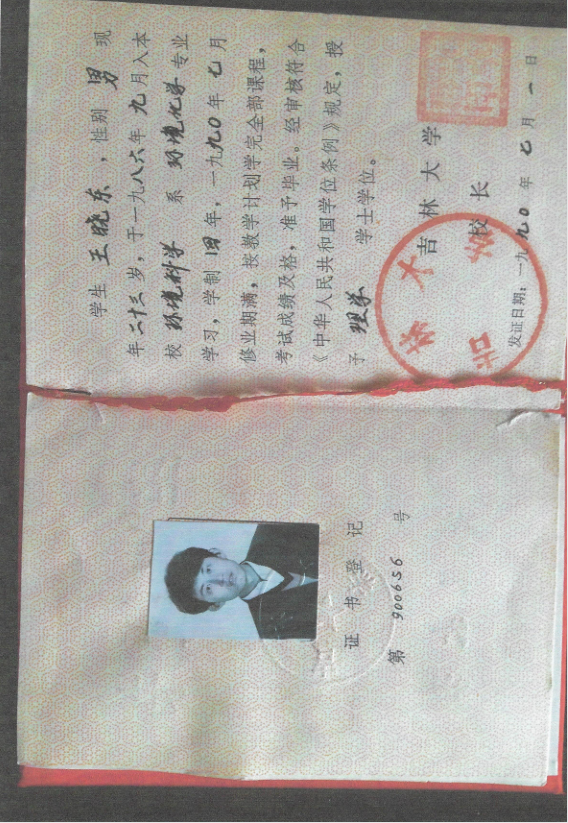 证书登记
第 900656 号
学生 王晓东 ，性别 男 现
年二十三岁，于一九八六年九月入本
校 环境科学 系 环境化学 专业
学习，学制 四 年，一九九〇年七月
修业期满，按教学计划学完全部课程，
考试成绩及格，准予毕业。经审核符合
《中华人民共和国学位条例》规定，授
予 理学 学士学位。
吉林大学
校长
发证日期：一九九〇年七月一日